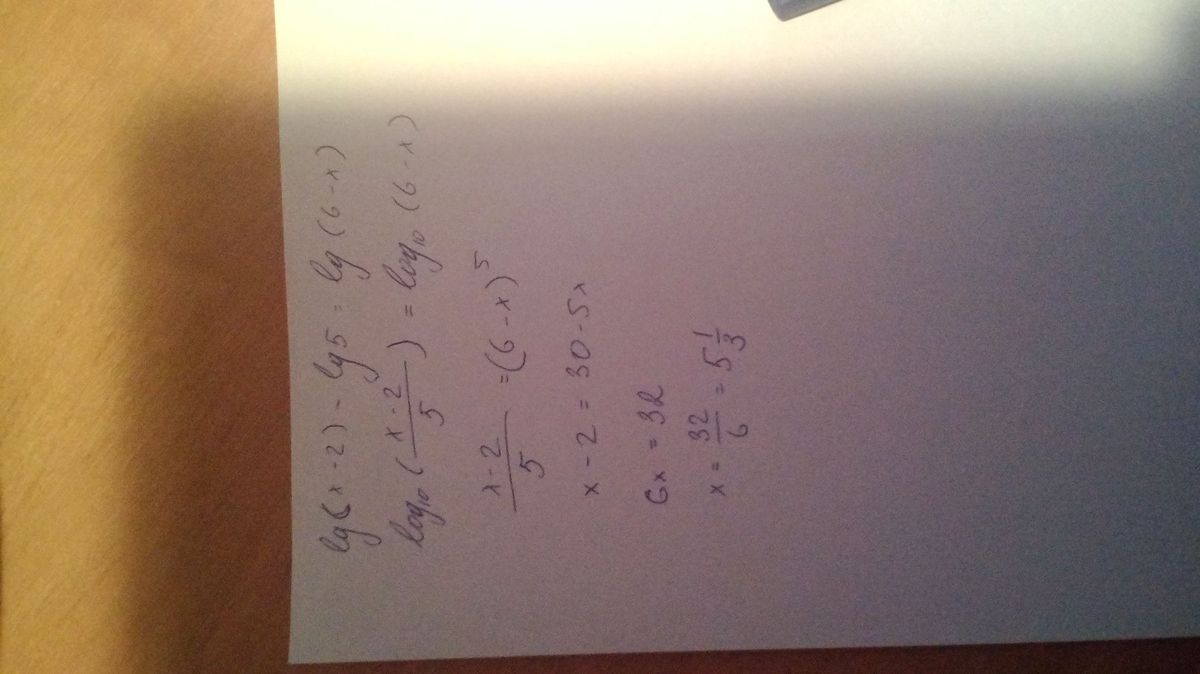 lg(x-2) - lg5 = lg(6-x)
log₁₀(\frac{x-2}{5}) = log₁₀(6-x)
\frac{x-2}{5} = (6-x)⁵
x-2 = 30-5x
6x = 32
x = \frac{32}{6} = 5\frac{1}{3}